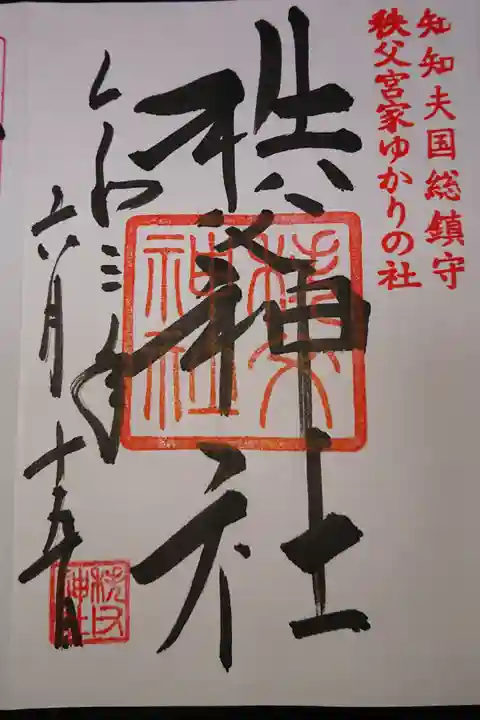 知知夫国総鎮守
秩父宮家ゆかりの社
秩父神社
秩父
神社
令和三年
六月十五日
秩父
神社